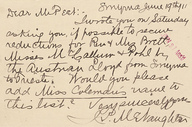 Smyrna June 19th/11
Dear Mr Peet:
I wrote you on Saturday
asking you, if possible to secure
reductions for Rev & Mrs Brett
Misses McCallum & Hall in
the Austrian Lloyd from Smyrna
to Trieste. Would you please
add Miss name to
this list?
Very sincerely yours,
McNaughton